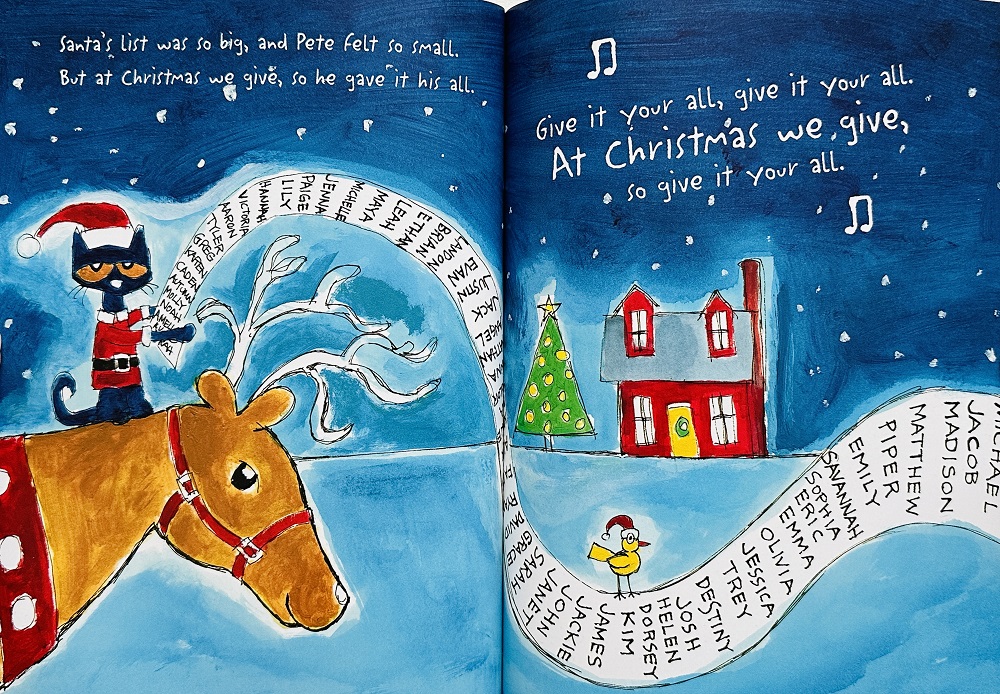 Santa's list was so big, and Pete felt so small.
But at Christmas we give, so he gave it his all.
Give it your all, give it your all.
At Christmas we give,
so give it your all.
NOAH
MOLLY
AUTUMN
CADEN
KAREN
GREG
TYLER
AARON
VICTORIA
HANNAH
LILY
PAIGE
JENNA
MICHELLE
MAYA
LEAH
ETHAN
BRIAN
LANDON
EVAN
JUSTIN
JACK
ANGEL
DAVID
GRACE
SARAH
JANET
JOHN
JACKIE
JAMES
KIM
DORSEY
HELEN
JOSH
DESTINY
TREY
JESSICA
OLIVIA
EMMA
ERIC
SOPHIA
SAVANNAH
EMILY
PIPER
MATTHEW
MADISON
JACOB
MICHAEL